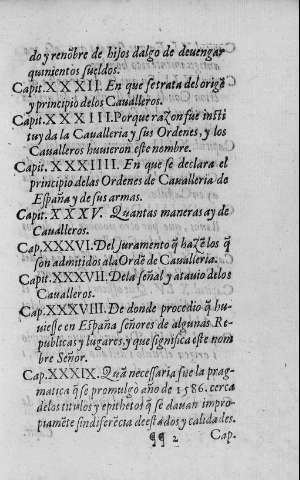 do y renõbre de hijos dalgo de deuengar
quinientos sueldos.
Capit. XXXII. En que se trata del origẽ
y principio delos Caualleros.
Capit. XXXIII. Porque razon fue insti
tuyda la Caualleria y sus Ordenes, y los
Caualleros huuieron este nombre.
Capit. XXXIIII. En que se declara el
principio delas Ordenes de Caualleria de
España y de sus armas.
Capit. XXXV. Quantas maneras ay de
Caualleros.
Cap. XXXVI. Del juramento q̃ hazẽ los q̃
son admitidos ala Ordẽ de Caualleria.
Capit. XXXVII. Dela señal y atauio delos
Caualleros.
Cap. XXXVIII. De donde procedio q̃ hu-
uiesse en España señores de algunas Re-
publicas y lugares, y que significa este nom
bre Señor.
Cap. XXXIX. Quã necessaria fue la prag-
matica q̃ se promulgo año de 1586. cerca
delos titulos y epithetos q̃ se dauan impro-
piamẽte sin diferẽcia de estados y calidades.
¶¶ 2 Cap.